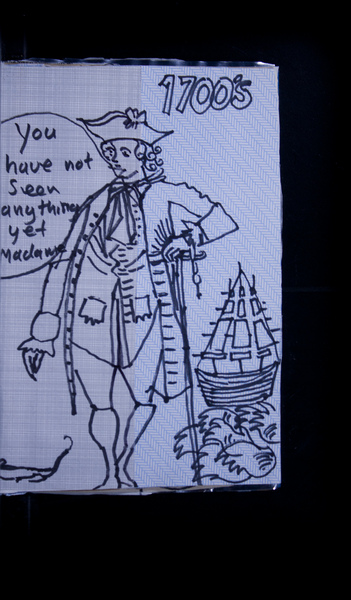 1700's
You
have not
Seen
anything
yet
Madame